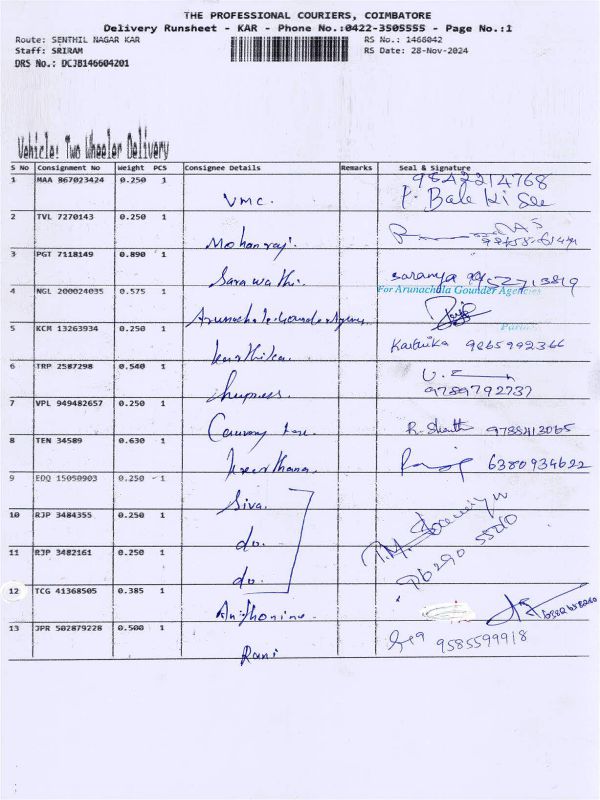 THE PROFESSIONAL COURIERS, COIMBATORE
Delivery Runsheet - KAR - Phone No.:0422-3505555 - Page No.:1
Route: SENTHIL NAGAR KAR RS No.: 1466042
Staff: SRIRAM RS Date: 28-Nov-2024
DRS No.: DCJB146604201
Vehicle: Two Wheeler Delivery
S No Consignment No Weight PCS Consignee Details Remarks Seal & Signature
1 MAA 867023424 0.250 1 VMC. 9842214768
2 TVL 7270143 0.250 1 Mohanraj.
3 PGT 7118149 0.890 1 Saraswathi. Saranya
For Arunachala Gounder Agencies
4 NGL 200024035 0.575 1 Arunachala Gounder Agency.
Partner
5 KCM 13263934 0.250 1 Karthika. Karthika 9865992366
6 TRP 2587298 0.540 1 9789792737
7 VPL 949482657 0.250 1 9788413065
8 TEN 34589 0.630 1 Keerthana. 6380934622
9 EDQ 15050903 0.250 1 Siva.
10 RJP 3484355 0.250 1 do.
11 RJP 3482161 0.250 1 do.
12 TCG 41368505 0.385 1
13 JPR 502879228 0.500 1 Rani 9585599918